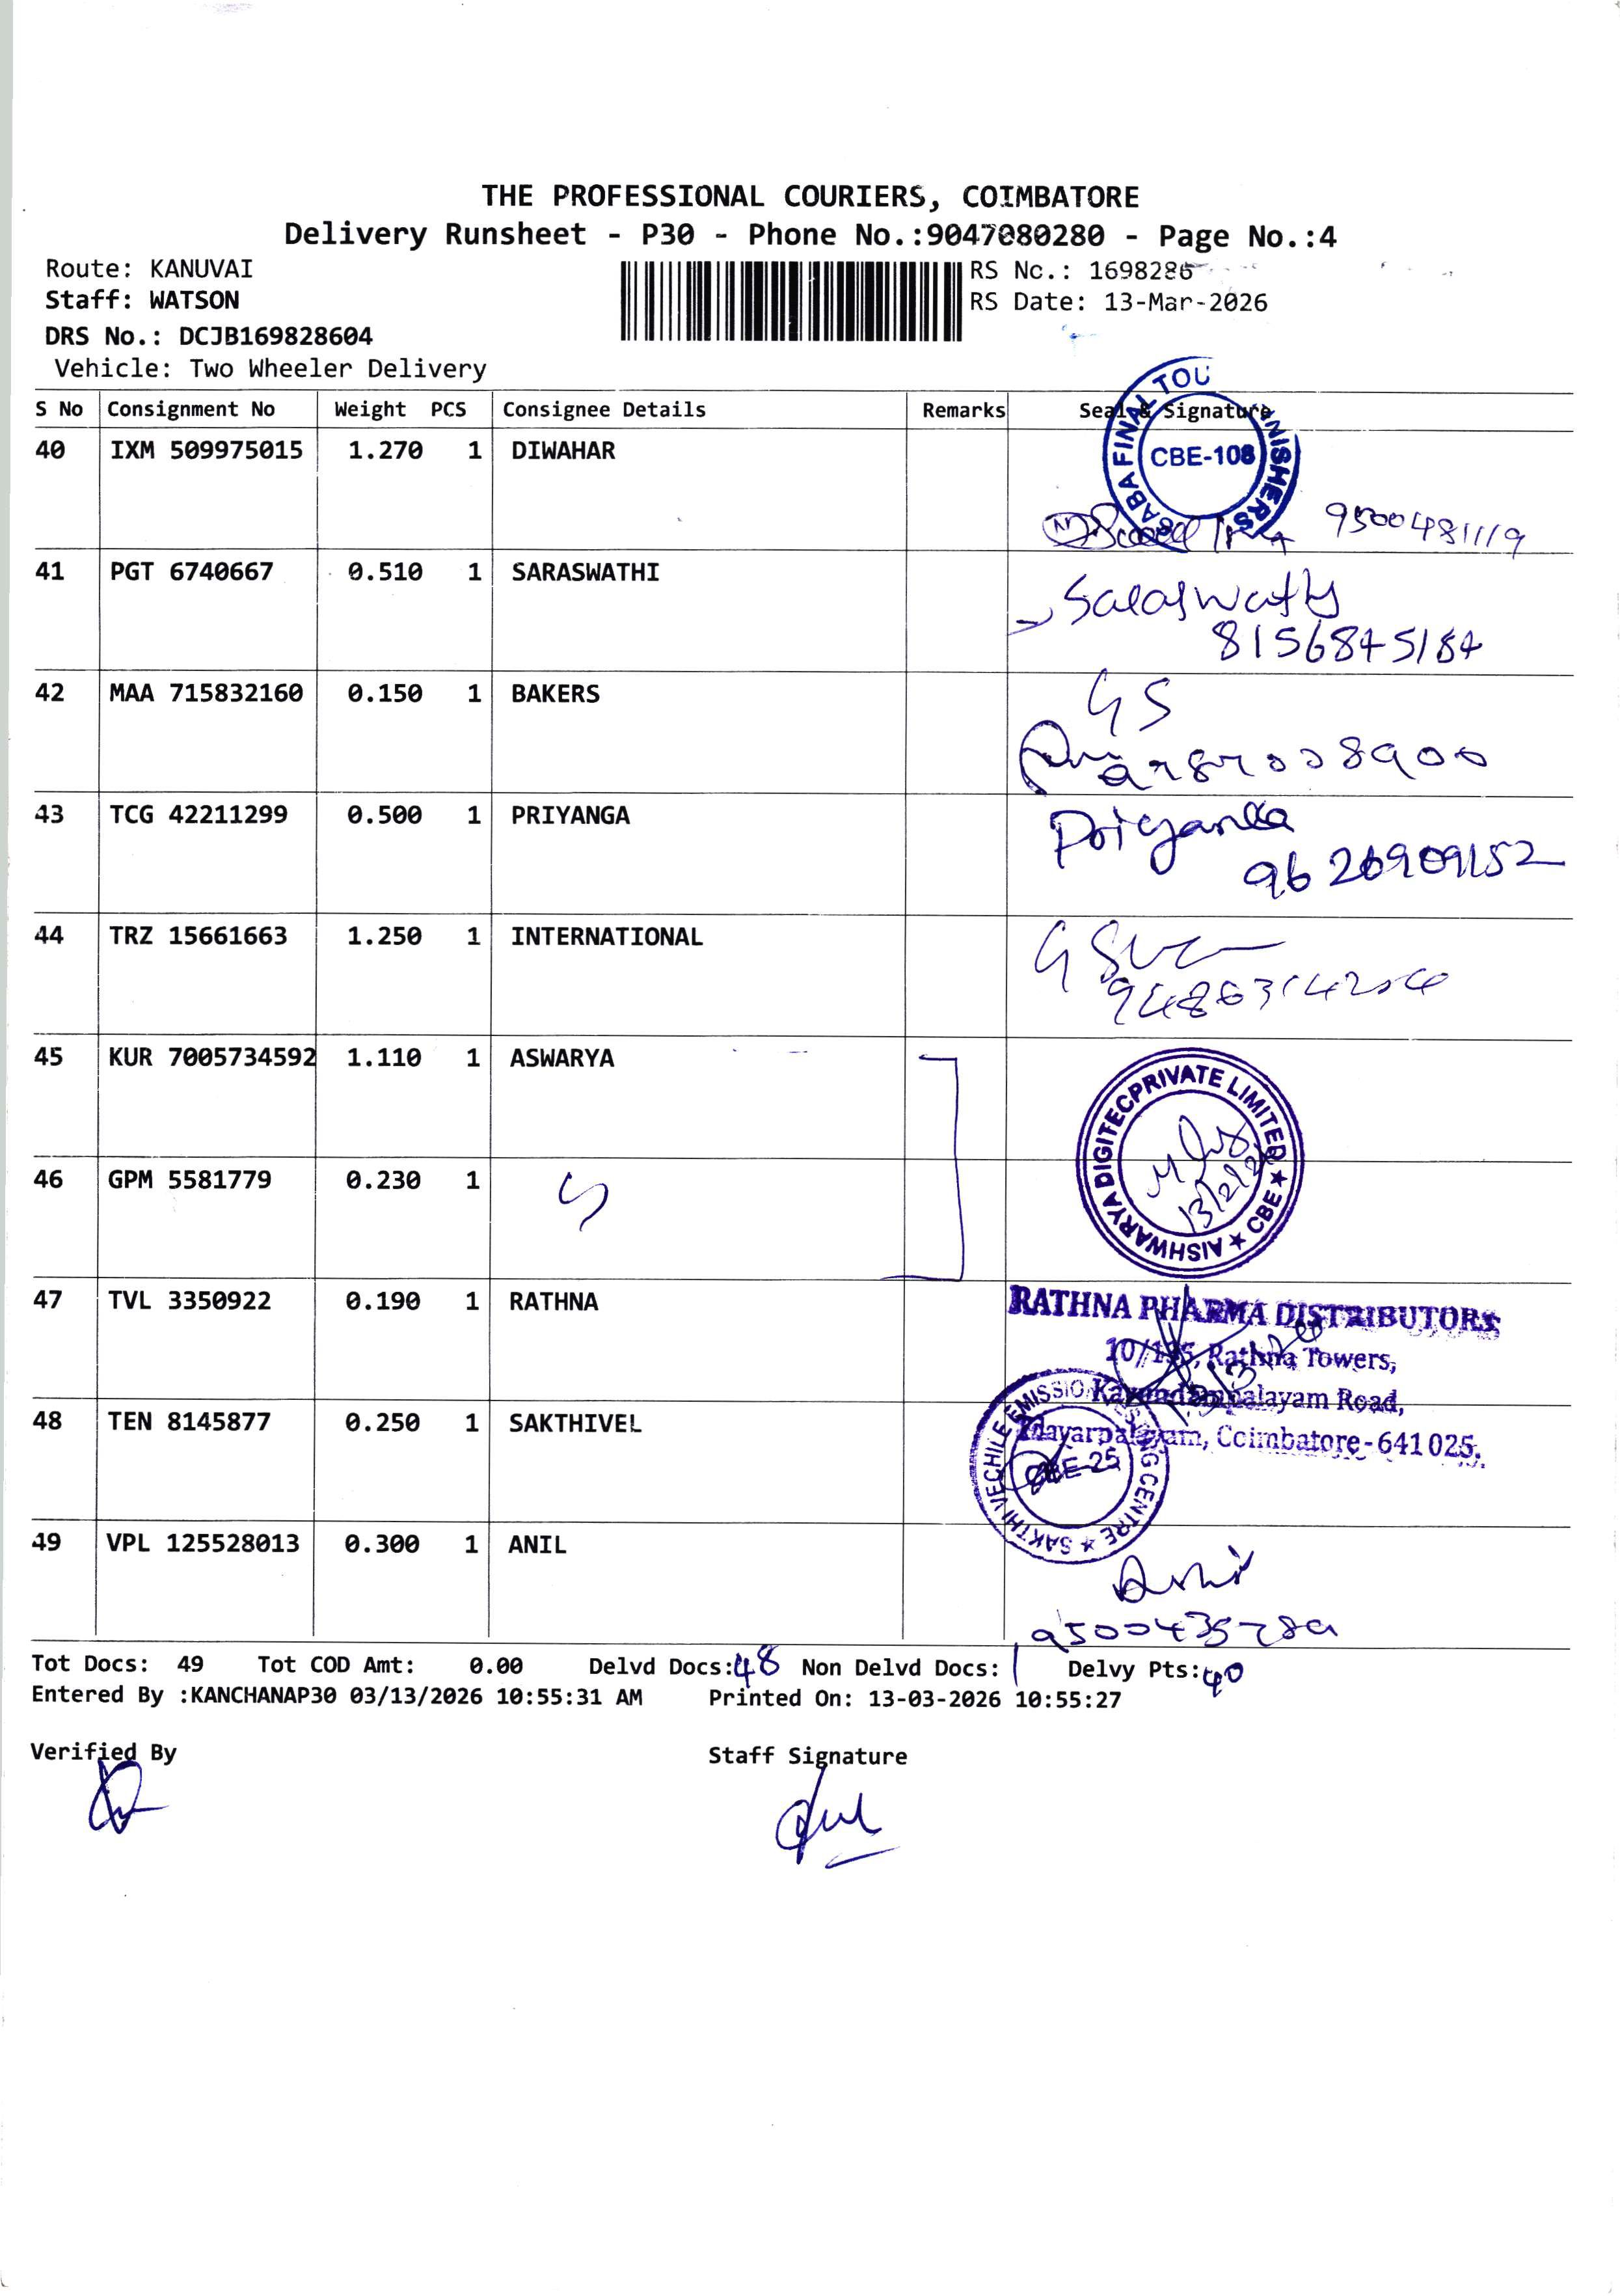 THE PROFESSIONAL COURIERS, COIMBATORE
Delivery Runsheet - P30 - Phone No.:9047080280 - Page No.:4
Route: KANUVAI
RS No.: 1698286
Staff: WATSON
RS Date: 13-Mar-2026
DRS No.: DCJB169828604
Vehicle: Two Wheeler Delivery
S No Consignment No Weight PCS Consignee Details Remarks Seal & Signature
40 IXM 509975015 1.270 1 DIWAHAR
SABA FINAL TOU NISHERS
CBE-108
9500481119
41 PGT 6740667 0.510 1 SARASWATHI
Saraswathy
8156845184
42 MAA 715832160 0.150 1 BAKERS
GS
43 TCG 42211299 0.500 1 PRIYANGA
Priyanka
9626909152
44 TRZ 15661663 1.250 1 INTERNATIONAL
45 KUR 7005734592 1.110 1 ASWARYA
AISHWARYA DIGITECPRIVATE LIMITED ★ CBE ★
46 GPM 5581779 0.230 1
47 TVL 3350922 0.190 1 RATHNA
RATHNA PHARMA DISTRIBUTORS
10/195, Rathna Towers,
Kavundampalayam Road,
Edayarpalayam, Coimbatore-641 025.
48 TEN 8145877 0.250 1 SAKTHIVEL
SAKTHI VECHILE EMISSION TESTING CENTRE ★
CBE-25
49 VPL 125528013 0.300 1 ANIL
Anil
9500435789
Tot Docs: 49 Tot COD Amt: 0.00 Delvd Docs:48 Non Delvd Docs: 1 Delvy Pts:40
Entered By :KANCHANAP30 03/13/2026 10:55:31 AM Printed On: 13-03-2026 10:55:27
Verified By Staff Signature